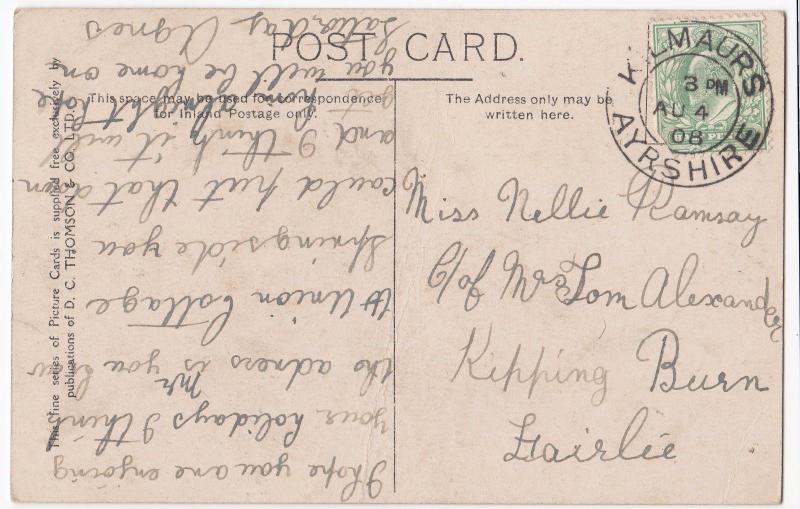 POST CARD.
This space may be used for correspondence
for Inland Postage only.
The Address only may be
written here.
This fine series of Picture Cards is supplied free exclusively by
publications of D. C. THOMSON & CO. LTD.
KILMAURS
3 PM
AU 4
08
AYRSHIRE
Miss Nellie Ramsay
C/o of Mrs Tom Alexander
Kipping Burn
Fairlie
I hope you are enjoying
your holidays I think
the adress is you
Mr
to Union Cottage
Springside you
could put that down
and I think it will
get all right hope
you will be home on
Saturday Agnes